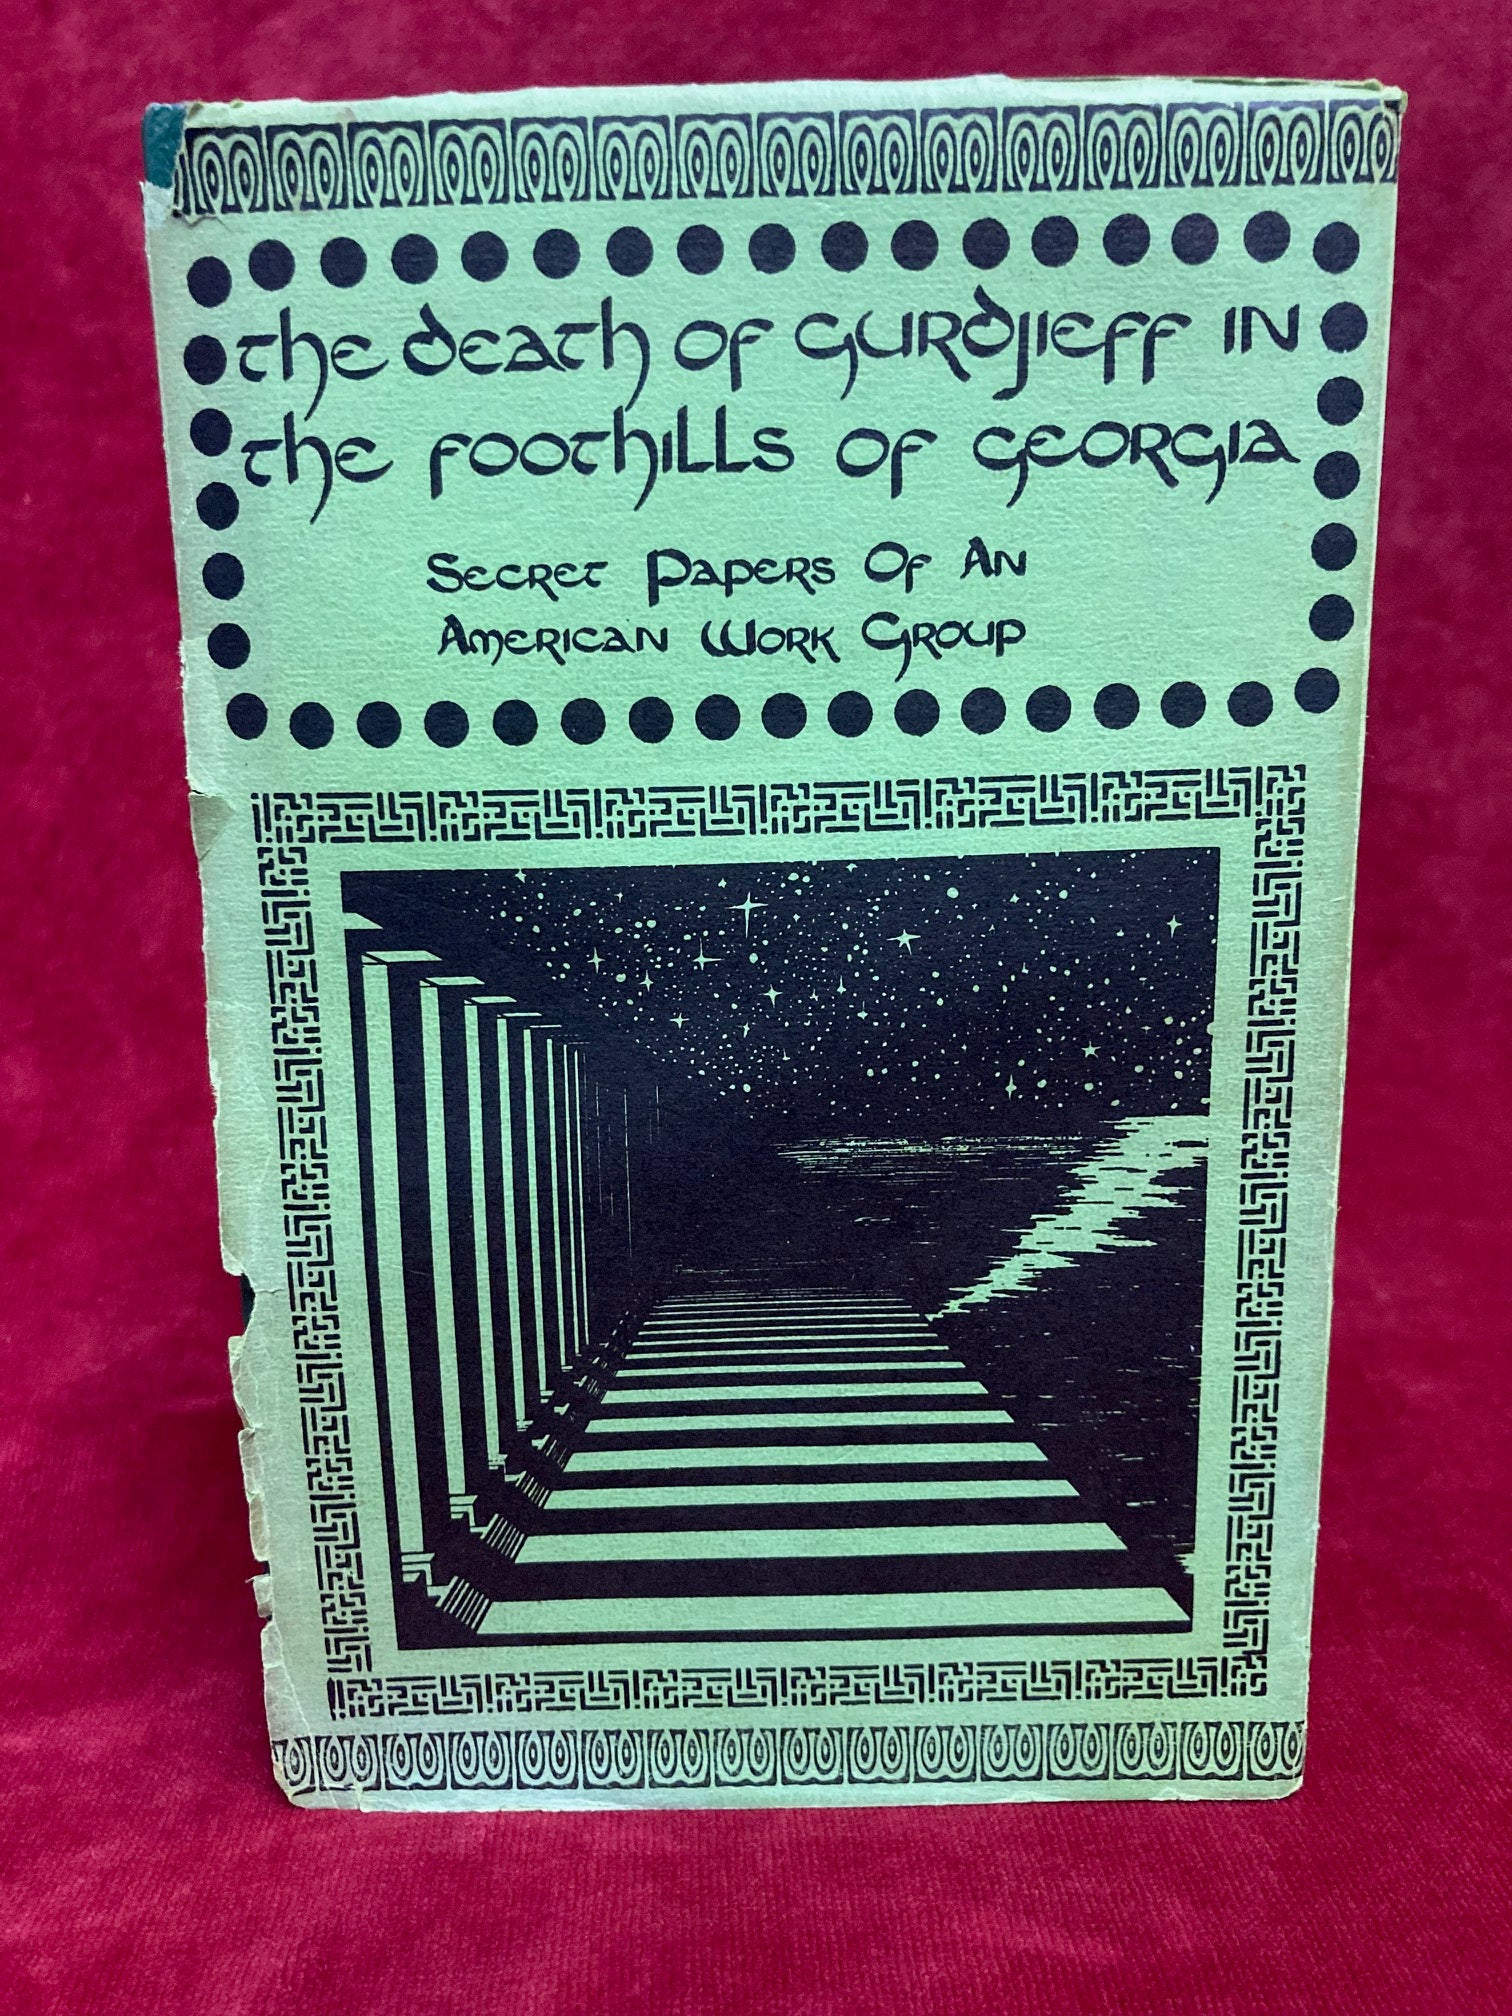 the death of Gurdjieff in
the foothills of Georgia
Secret Papers Of An
American Work Group